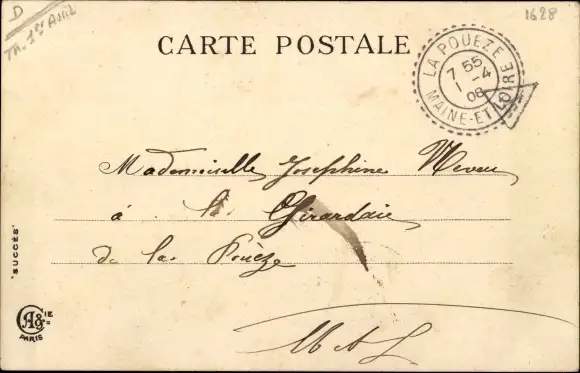 D
TM. 1er Avril
1628
CARTE POSTALE
LA POUEZE
7 55
1 -4
08
MAINE-ET-LOIRE
Mademoiselle Josephine Neveu
à la Girardaie
de la Pouëze
M & L
"SUCCÈS"
CIE
A&
PARIS